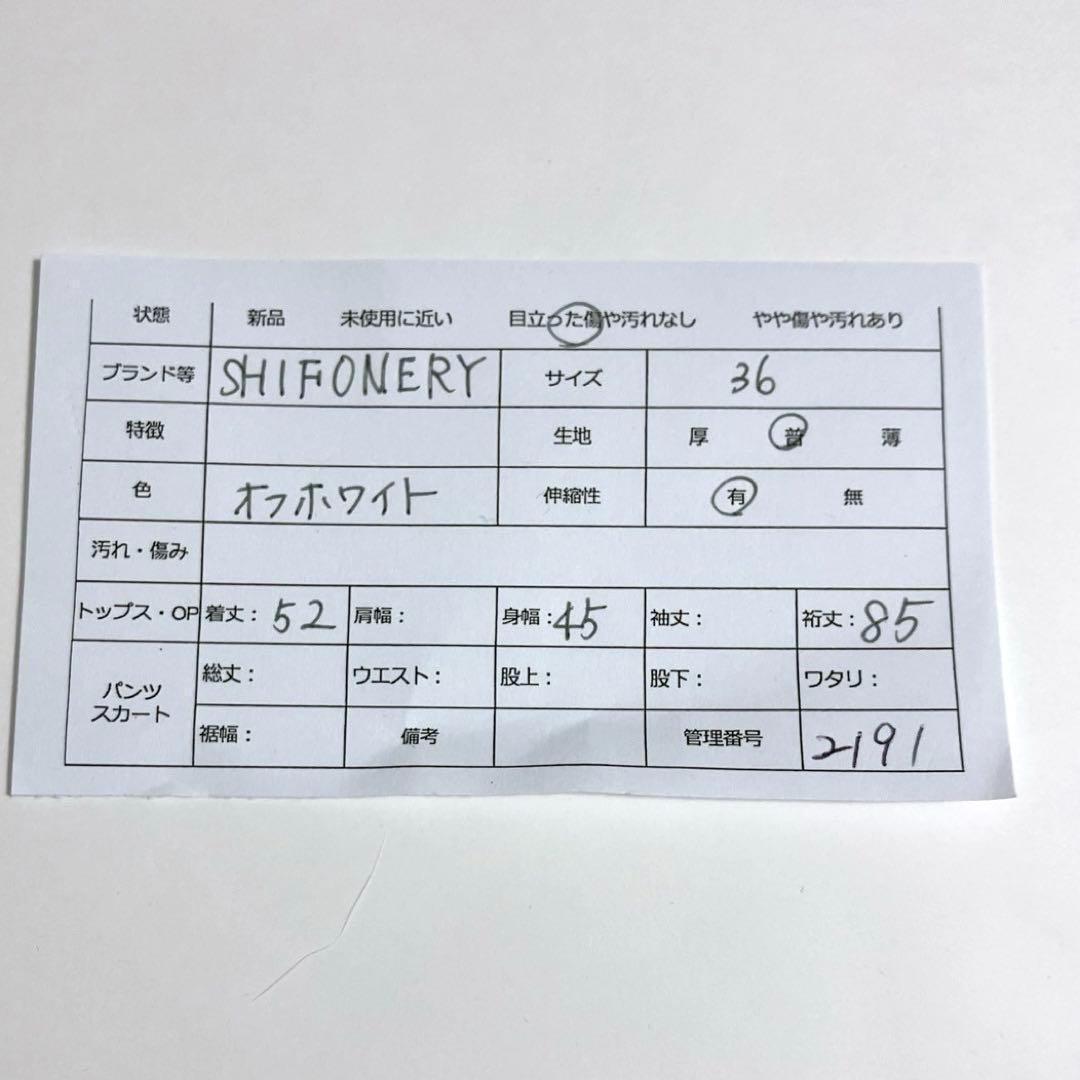 状態 新品 未使用に近い 目立った傷や汚れなし やや傷や汚れあり
ブランド等 SHIFONERY サイズ 36
特徴 生地 厚 普 薄
色 オフホワイト 伸縮性 有 無
汚れ・傷み
トップス・OP 着丈: 52 肩幅: 身幅: 45 袖丈: 裄丈: 85
パンツ
スカート
総丈: ウエスト: 股上: 股下: ワタリ:
裾幅: 備考 管理番号 2191